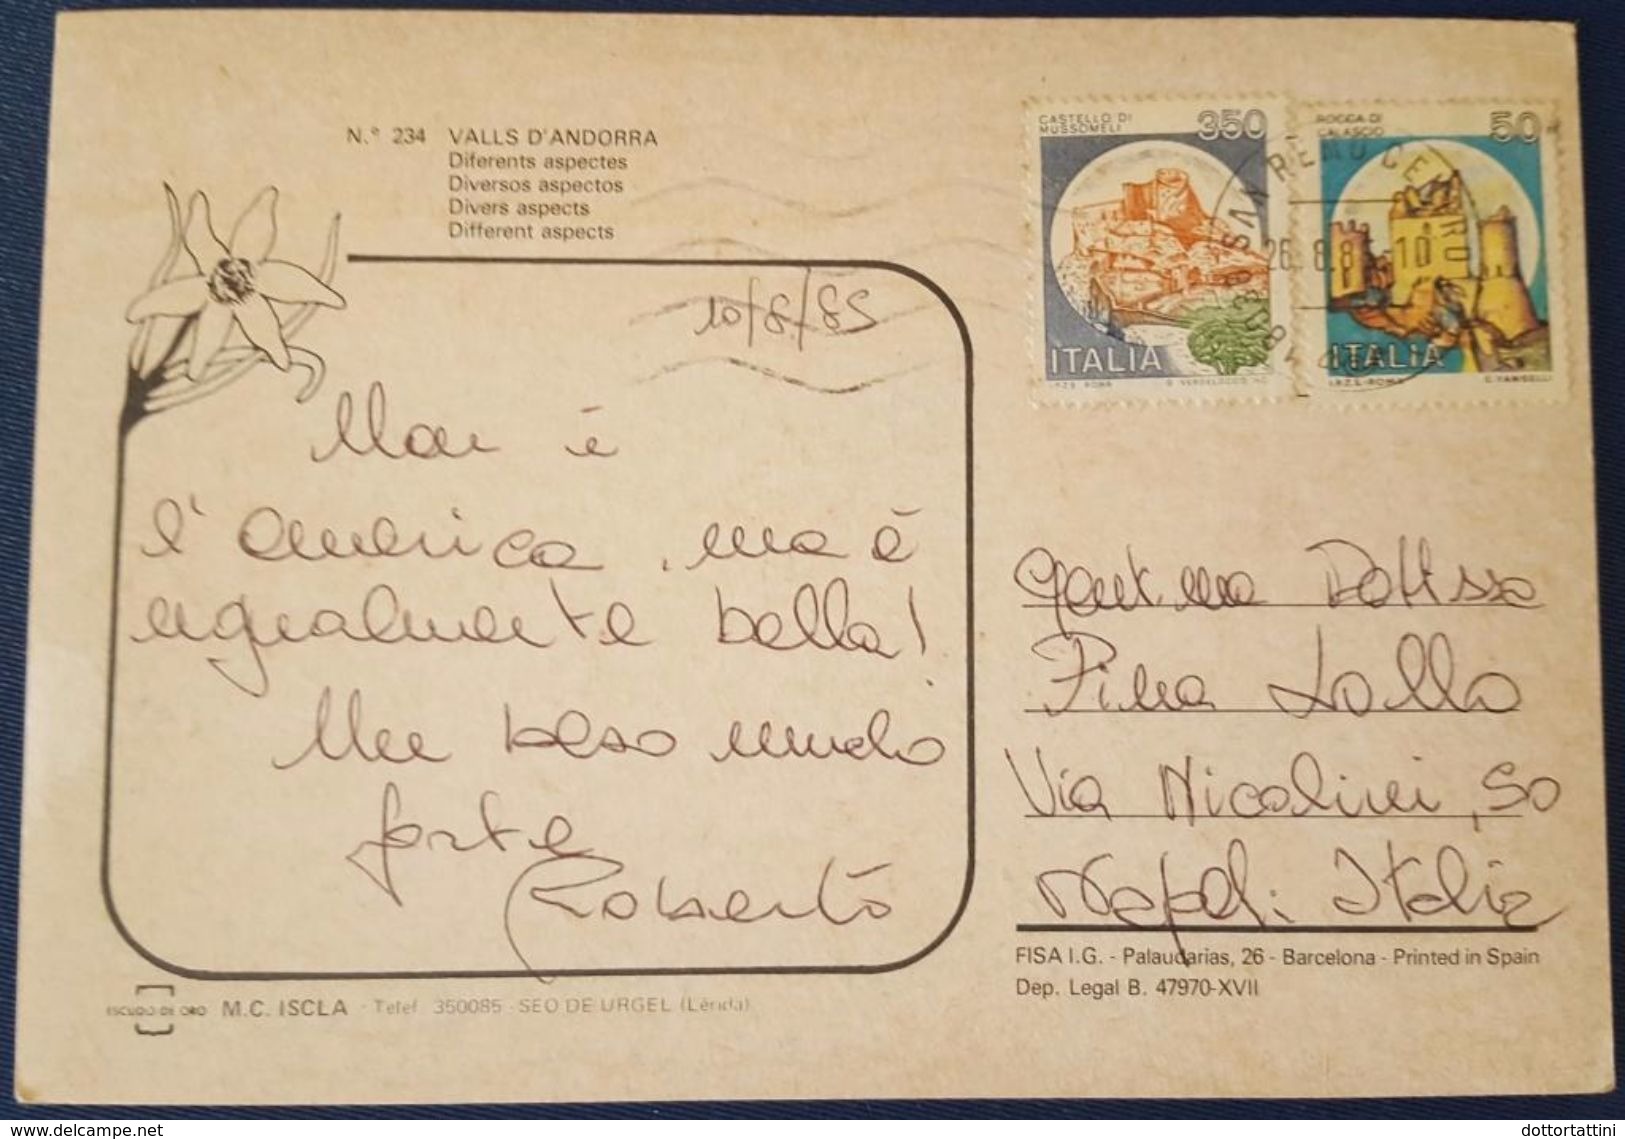 N.º 234 VALLS D'ANDORRA
Diferents aspectes
Diversos aspectos
Divers aspects
Different aspects
10/8/85
Non è
l'america, ma è
ugualmente bella!
Un bacio molto
forte
Roberto
CASTELLO DI
MUSSOMELI
350
ITALIA
I.P.Z.S. ROMA
ROCCA DI
CALASCIO
50
ITALIA
I.P.Z.S.-ROMA
SAN REMO CENTRO
26.8.8 -10
Gent.ma Dott.ssa
Pina Lollo
Via Nicolini, 50
Napoli Italia
FISA I.G. - Palaudarias, 26 - Barcelona - Printed in Spain
Dep. Legal B. 47970-XVII
ESCUDO DE ORO M.C. ISCLA - Telef. 350085 - SEO DE URGEL (Lérida)
www.delcampe.net
dottortattini